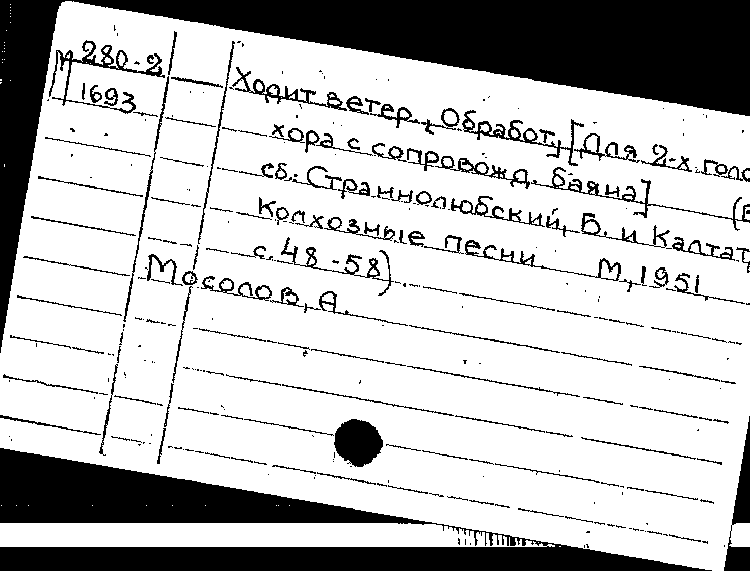 М 280-2
1693
Ходит ветер., Обработ., [Для 2-х голо
хора с сопровожд. баяна] (В
сб.: Страннолюбский, Б. и Калтат,
Колхозные песни. М., 1951.
с. 48-58).
Мосолов, А.